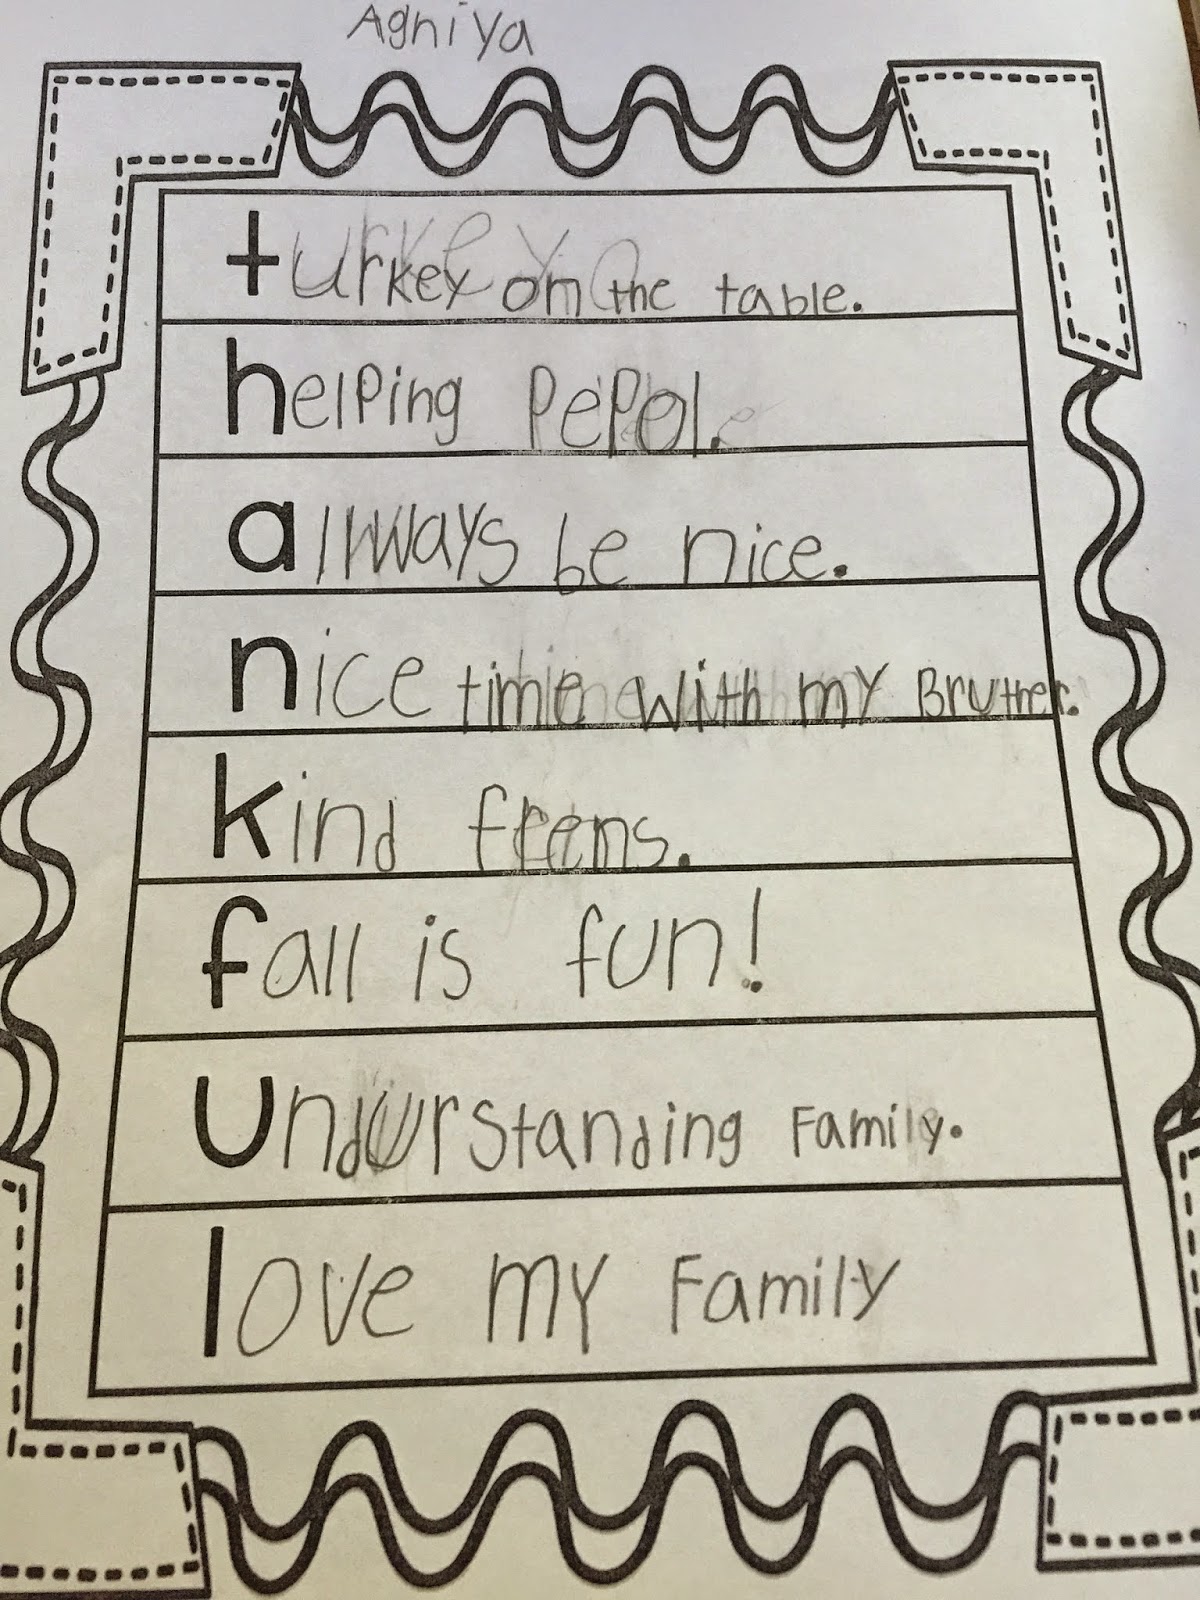 Agniya
turkey on the table.
helping pepol.
always be nice.
nice time with my Bruther.
kind frens.
fall is fun!
undurstanding Family.
love my Family